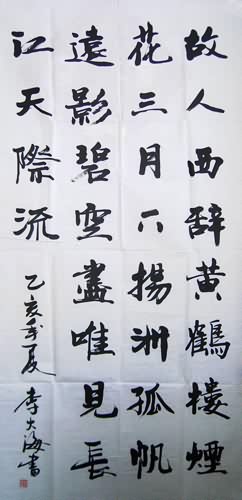 故人西辞黄鶴樓煙
花三月下揚洲孤帆
遠影碧空盡唯見長
江天際流
乙亥年夏
李大海書